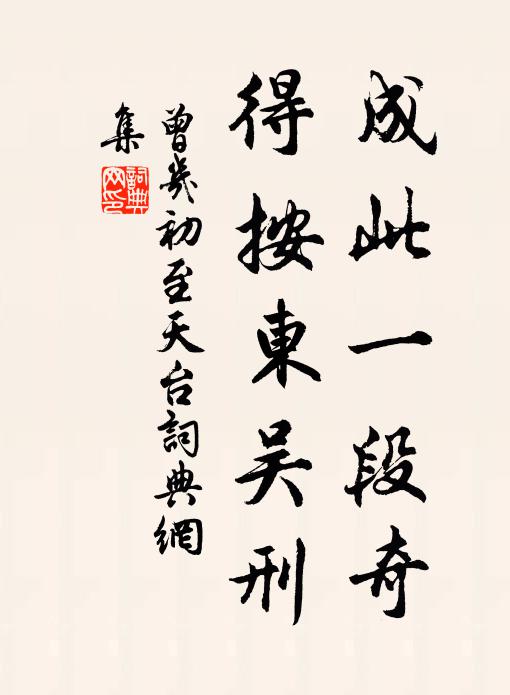 成此一段奇
得按東吳刑
曾幾初至天台詞典網
集
詞典
网印